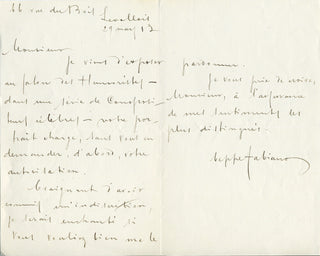 66 rue du Bois
Levallois
29 mars 13
Monsieur
Je viens d'exposer
au salon des Humoristes –
dans une série de Composit
eurs célèbres – votre por-
trait charge, sans vous en
demander, d'abord, votre
autorisation.
Craignant d'avoir
commis indiscrétion,
je serais enchanté si
vous vouliez bien me le
pardonner.
Je vous prie de croire,
Monsieur, à l'assurance
de mes sentiments les
plus distingués.
Neppe Fabiano